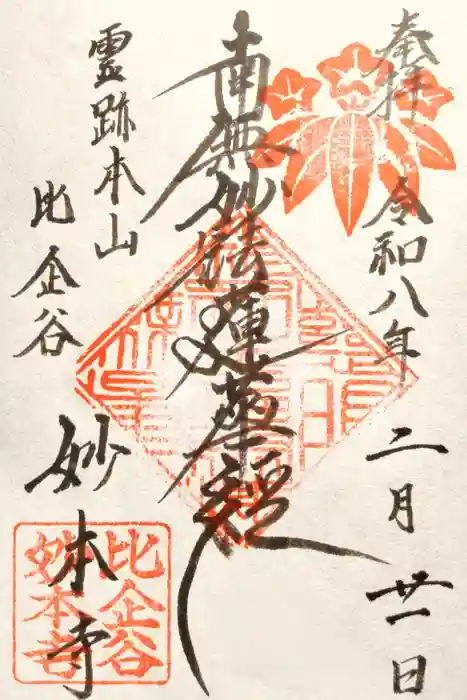 奉拝
令和八年
二月廿一日
南無妙法蓮華経
霊跡本山
比企谷
妙本寺
比企谷
妙本寺